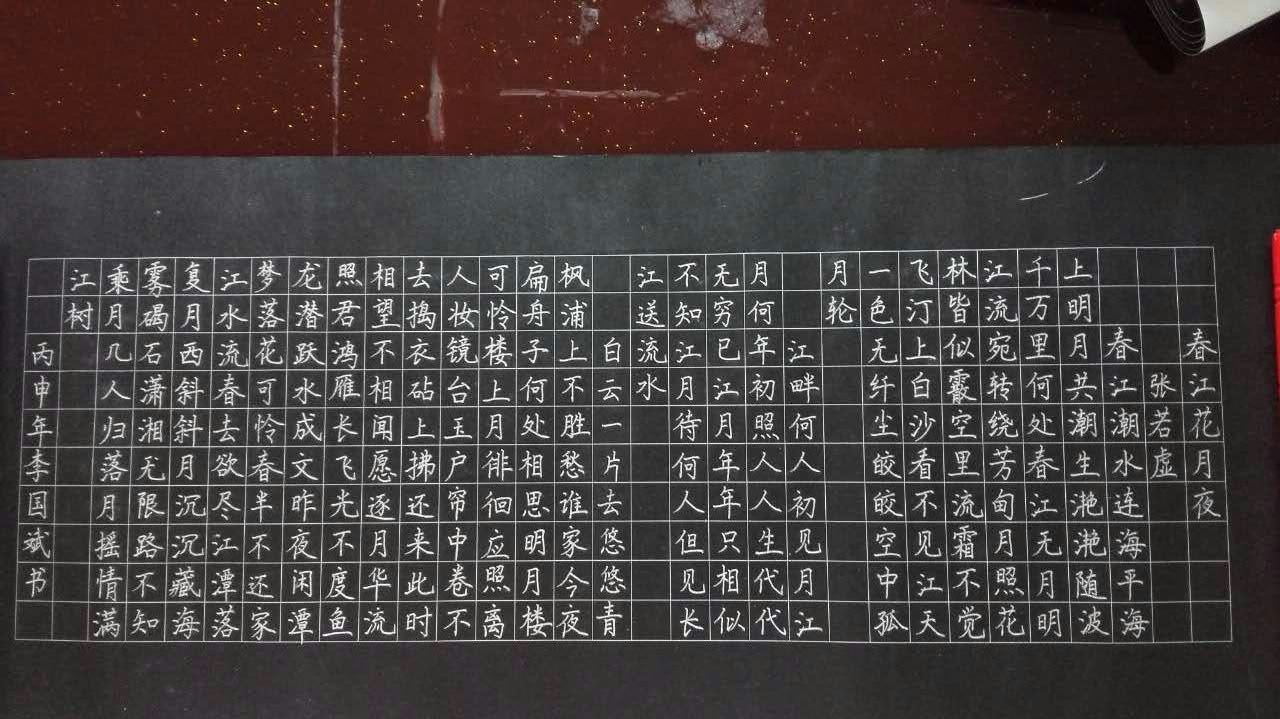 春江花月夜
张若虚
春江潮水连海平海
上明月共潮生滟滟随波
千万里何处春江无月明
江流宛转绕芳甸月照花
林皆似霰空里流霜不觉
飞汀上白沙看不见江天
一色无纤尘皎皎空中孤
月轮
江畔何人初见月江
月何年初照人人生代代
无穷已江月年年只相似
不知江月待何人但见长
江送流水
白云一片去悠悠青
枫浦上不胜愁谁家今夜
扁舟子何处相思明月楼
可怜楼上月徘徊应照离
人妆镜台玉户帘中卷不
去捣衣砧上拂还来此时
相望不相闻愿逐月华流
照君鸿雁长飞光不度鱼
龙潜跃水成文昨夜闲潭
梦落花可怜春半不还家
江水流春去欲尽江潭落
复月西斜斜月沉沉藏海
雾碣石潇湘无限路不知
乘月几人归落月摇情满
江树
丙申年李国斌书